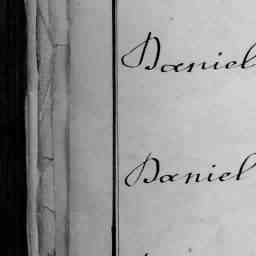 Daniel
Daniel